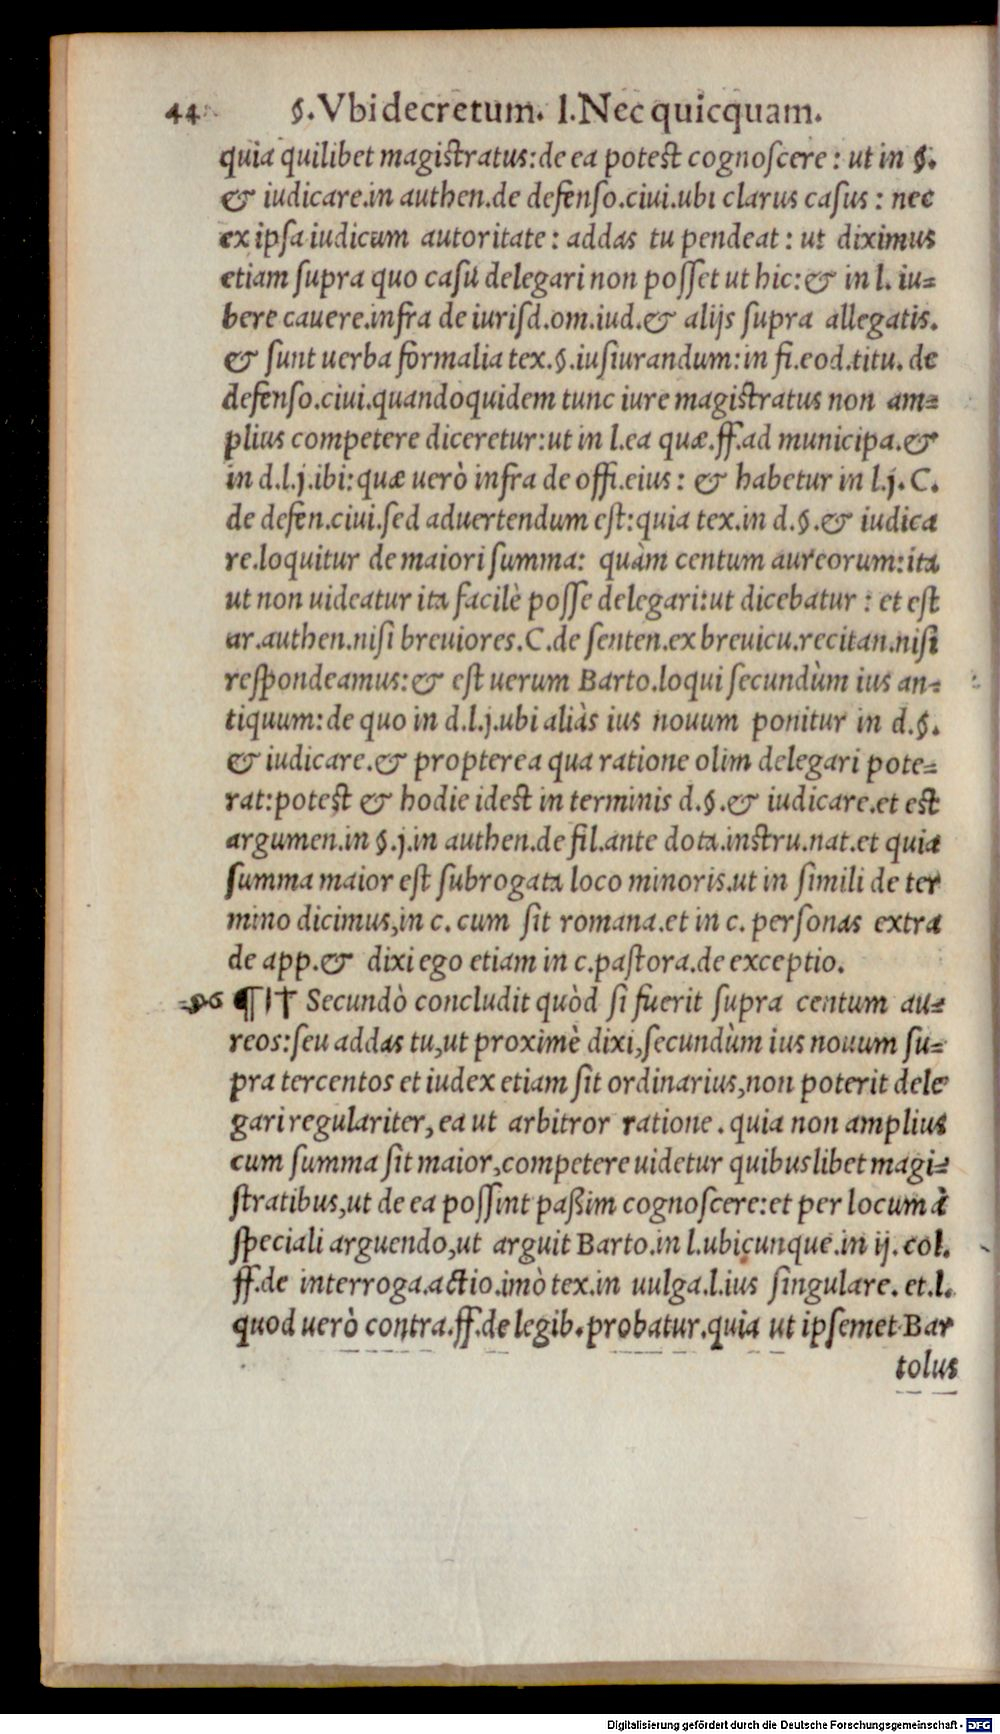 44 §. Vbi decretum. l. Nec quicquam.
quia quilibet magistratus: de ea potest cognoscere: ut in §.
& iudicare.in authen.de defenso.ciui.ubi clarus casus: nec
ex ipsa iudicum autoritate: addas tu pendeat: ut diximus
etiam supra quo casu delegari non posset ut hic:& in l. iu=
bere cauere.infra de iurisd.om.iud.& alijs supra allegatis.
& sunt uerba formalia tex.§.iusiurandum: in fi.eod.titu. de
defenso.ciui.quandoquidem tunc iure magistratus non am=
plius competere diceretur:ut in l.ea quæ.ff.ad municipa.&
in d.l.j.ibi:quæ uerò infra de offi.eius: & habetur in l.j. C.
de defen.ciui.sed aduertendum est:quia tex.in d.§.& iudica
re.loquitur de maiori summa: quàm centum aureorum:ita
ut non uideatur ita facilè posse delegari:ut dicebatur: et est
ar.authen.nisi breuiores.C.de senten.ex breuicu.recitan.nisi
respondeamus:& est uerum Barto.loqui secundùm ius an=
tiquum: de quo in d.l.j.ubi aliàs ius nouum ponitur in d.§.
& iudicare.& propterea qua ratione olim delegari pote=
rat:potest & hodie idest in terminis d.§.& iudicare.et est
argumen.in §.j.in authen.de fil.ante dota.instru.nat.et quia
summa maior est subrogata loco minoris.ut in simili de ter
mino dicimus,in c. cum sit romana.et in c. personas extra
de app.& dixi ego etiam in c.pastora.de exceptio.
¶ † Secundò concludit quòd si fuerit supra centum au=
reos:seu addas tu,ut proximè dixi,secundùm ius nouum su=
pra tercentos et iudex etiam sit ordinarius,non poterit dele
gari regulariter, ea ut arbitror ratione. quia non amplius
cum summa sit maior,competere uidetur quibuslibet magi=
stratibus,ut de ea possint paßim cognoscere:et per locum à
speciali arguendo,ut arguit Barto.in l.ubicunque.in ij. col.
ff.de interroga.actio.imò tex.in uulga.l.ius singulare. et.l.
quod uerò contra.ff.de legib.probatur.quia ut ipsemet Bar
tolus
Digitalisierung gefördert durch die Deutsche Forschungsgemeinschaft - DFG